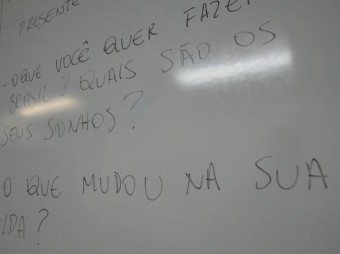 PRESENTE
. O QUE VOCÊ QUER FAZER
BRASIL? QUAIS SÃO OS
SEUS SONHOS?
O QUE MUDOU NA SUA
VIDA?